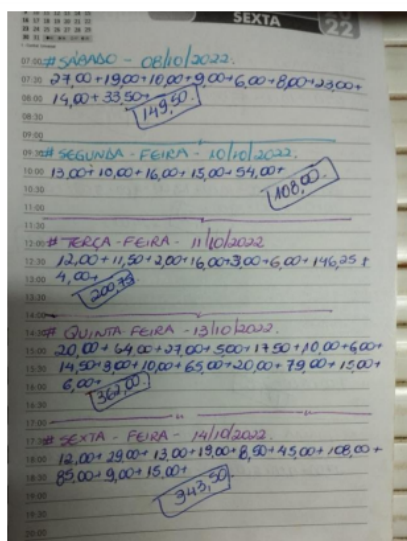 SEXTA
22
07:00 # SÁBADO - 08/10/2022.
07:30 27,00+19,00+10,00+9,00+6,00+8,00+23,00+
08:00 14,00+33,50+ 149,50.
08:30
09:00
09:30 # SEGUNDA - FEIRA - 10/10/2022.
10:00 13,00+10,00+16,00+15,00+54,00+
10:30 108,00.
11:00
11:30
12:00 # TERÇA-FEIRA - 11/10/2022
12:30 12,00+11,50+2,00+16,00+3,00+6,00+146,25+
13:00 4,00+ 200,75
13:30
14:00
14:30 # QUINTA FEIRA - 13/10/2022.
15:00 20,00+64,00+27,00+5,00+17,50+10,00+6,00+
15:30 14,50+3,00+10,00+65,00+20,00+79,00+15,00+
16:00 6,00+ 362,00.
16:30
17:00
17:30 # SEXTA - FEIRA - 14/10/2022.
18:00 12,00+29,00+13,00+19,00+8,50+45,00+108,00+
18:30 85,00+9,00+15,00+
19:00 343,50.
19:30
20:00